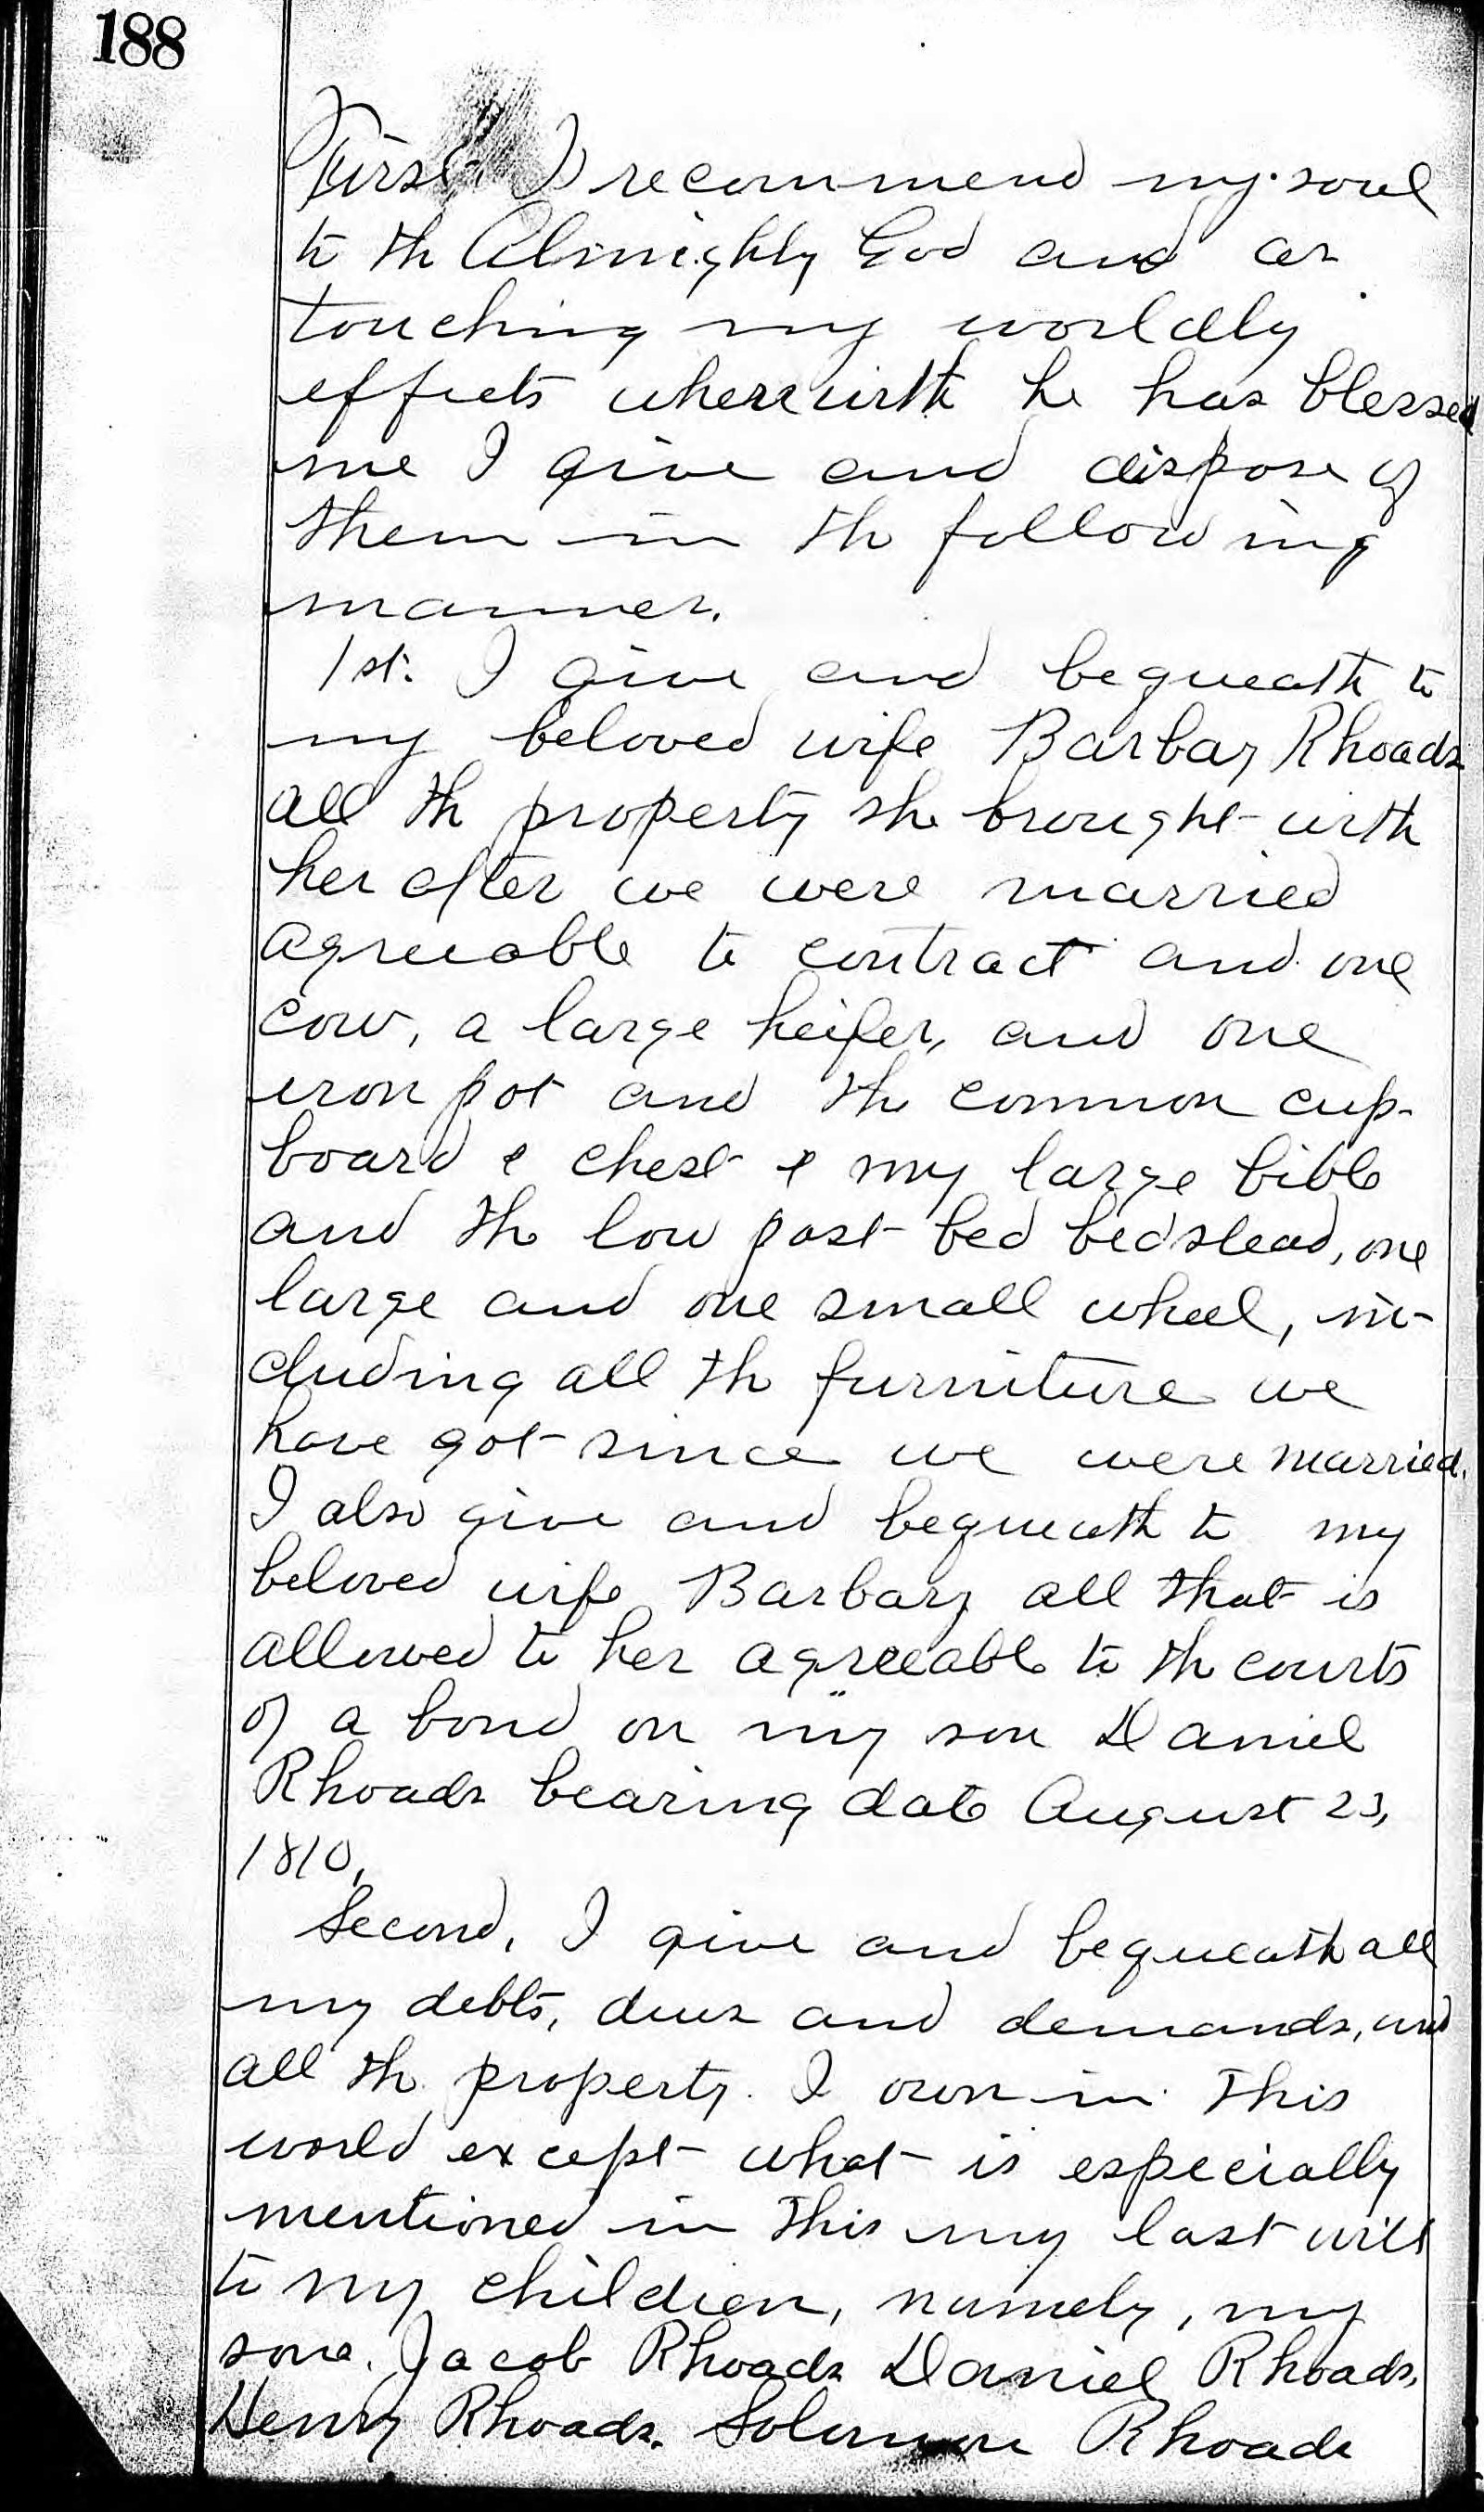 188
First I recommend my soul
to th Almighty God and as
touching my worldly
effects wherewith he has blessed
me I give and dispose of
them in th following
manner.
1st. I give and bequeath to
my beloved wife Barbary Rhoads
all th property she brought with
her after we were married
agreeable to contract and one
cow, a large heifer, and one
iron pot and the common cup-
board & chest & my large bible
and the low post bed bedstead, one
large and one small wheel, in-
cluding all th furniture we
have got since we were married.
I also give and bequeath to my
beloved wife Barbary all that is
allowed to her agreeable to th courts
of a bond on my son Daniel
Rhoads bearing date August 23,
1810,
Second, I give and bequeath all
my debts, dues and demands, and
all th property I own in this
world except what is especially
mentioned in this my last will
to my children, namely, my
sons. Jacob Rhoads Daniel Rhoads,
Henry Rhoads. Solomon Rhoads